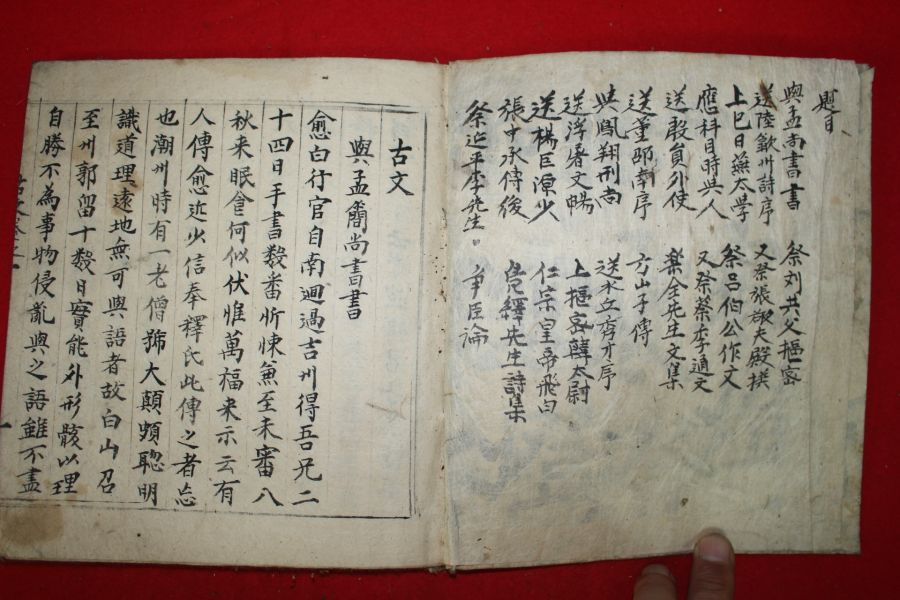 題目
與孟尚書書
送陸歙州詩序
上巳日燕太學
應科目時與人
送殷員外使
送董邵南序
與鳳翔刑尚
送浮屠文暢
送楊巨源少
張中丞傳後
祭延平李先生
祭刘共父樞密
又祭張敬夫殿撰
祭呂伯公作文
又祭蔡季通文
樂全先生文集
方山子傳
送水丘秀才序
上樞密韓太尉
仁宗皇帝飛白
鳧繹先生詩集
爭臣論
古文
與孟簡尚書書
愈白行官自南迴過吉州得吾兄二
十四日手書數番忻悚兼至未審八
秋来眠食何似伏惟萬福来示云有
人傳愈近少信奉釋氏此傳之者忘
也潮州時有一老僧號大顛頗聡明
識道理遠地無可與語者故自山召
至州郭留十數日實能外形骸以理
自勝不為事物侵亂與之語雖不盡